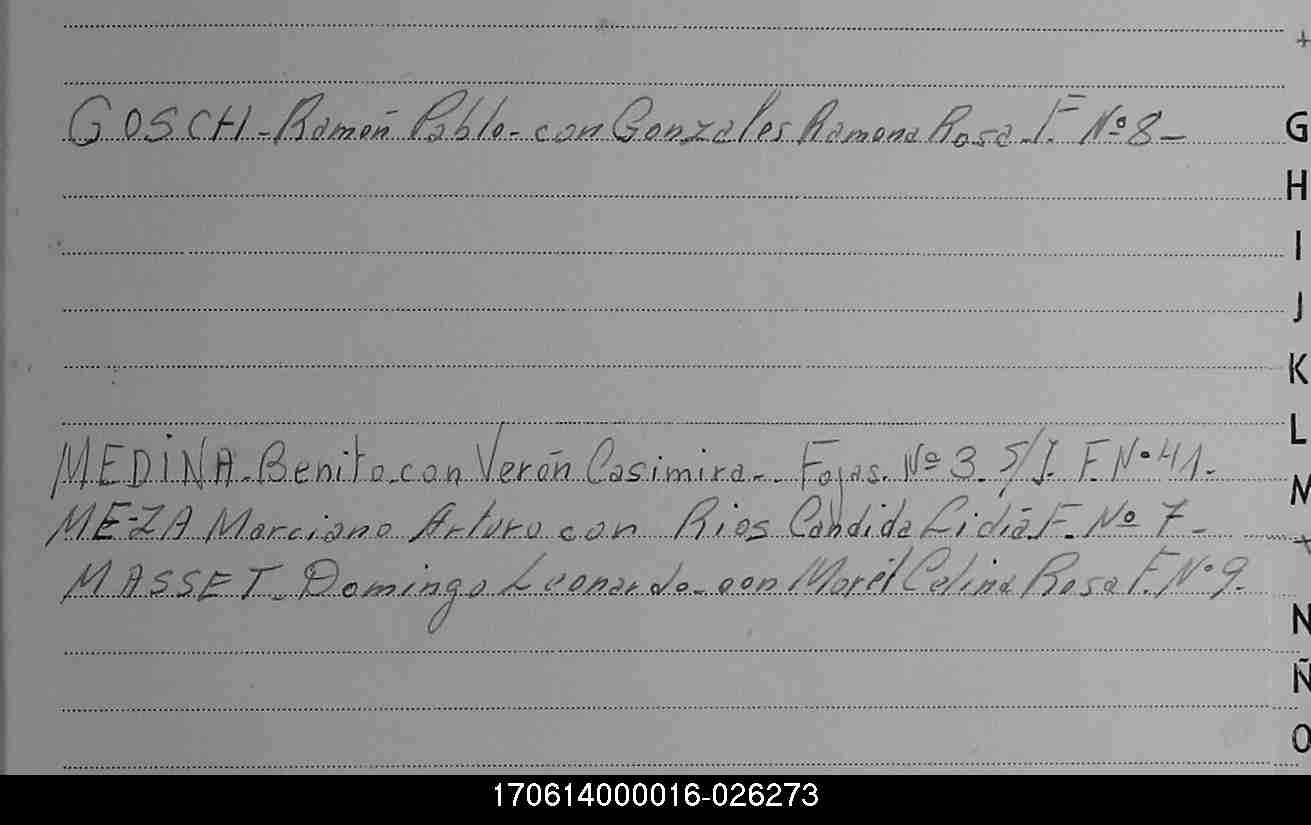 GOSCH-Ramón Pablo-con Gonzales Ramona Rosa-F. Nº8-
G
H
I
J
K
L
MEDINA-Benito-con Verón Casimira-. Fojas. Nº 3. S/J. F.Nº41.
M
MEZA Marciano Arturo con Rios Candida Lidia.F. Nº 7-
MASSET-Domingo Leonardo-con Morel Celina Rosa F.Nº9.
N
Ñ
O
170614000016-026273